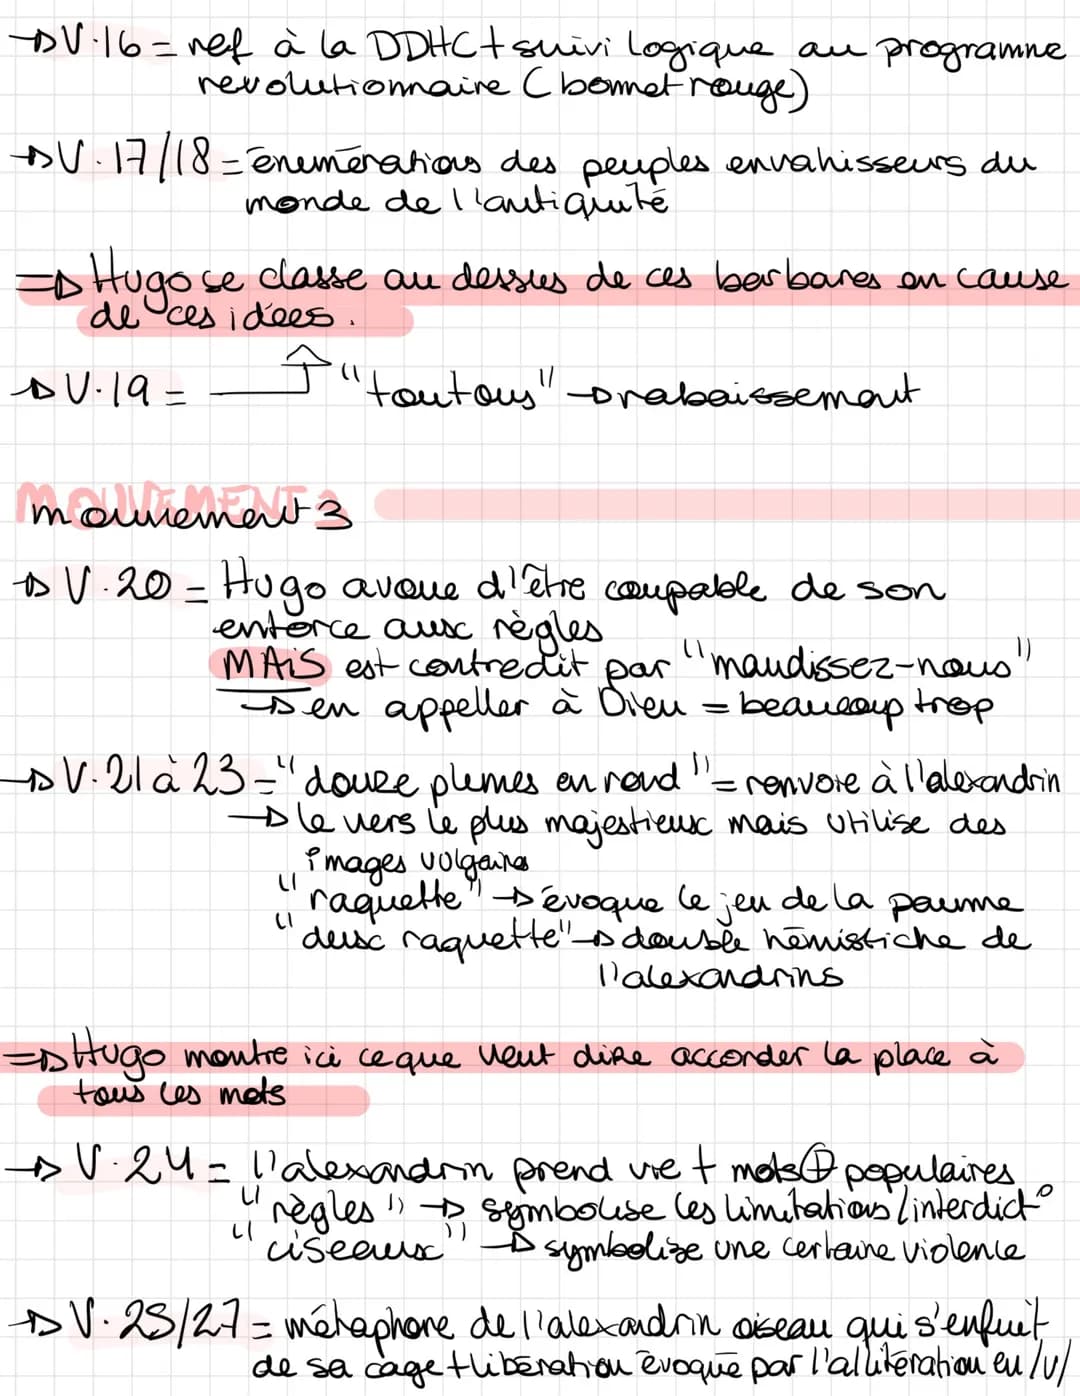 → V.16 = ref à la DDHC + suivi logique au programme
revolutionnaire (bonnet rouge)
→ V.17/18 = énumérations des peuples envahisseurs du
monde de l'antiquité
⇒ Hugo se classe au dessus de ces barbares en cause
de ces idées.
→ V.19 = "toutous" → rabaissement
MOUVEMENT 3
mouvement 3
→ V.20 = Hugo avoue d'être coupable de son
entorce aux règles
MAiS est contredit par "maudissez-nous"
→ en appeller à Dieu = beaucoup trop
→ V.21 à 23 = "douze plumes en rond" = renvoie à l'alexandrin
→ le vers le plus majestieux mais utilise des
images vulgaires
"raquette" → évoque le jeu de la paume
"deux raquette" → double hémistiche de
l'alexandrins
⇒ Hugo montre ici ce que veut dire accorder la place à
tous les mots
→ V.24 = l'alexandrin prend vie + mots ⊕ populaires
"règles" → symbolise les limitations/interdict°
"ciseaux" → symbolize une certaine violence
→ V.25/27 = métaphore de l'alexandrin oiseau qui s'enfuit
de sa cage + libération évoquée par l'allitération en /v/